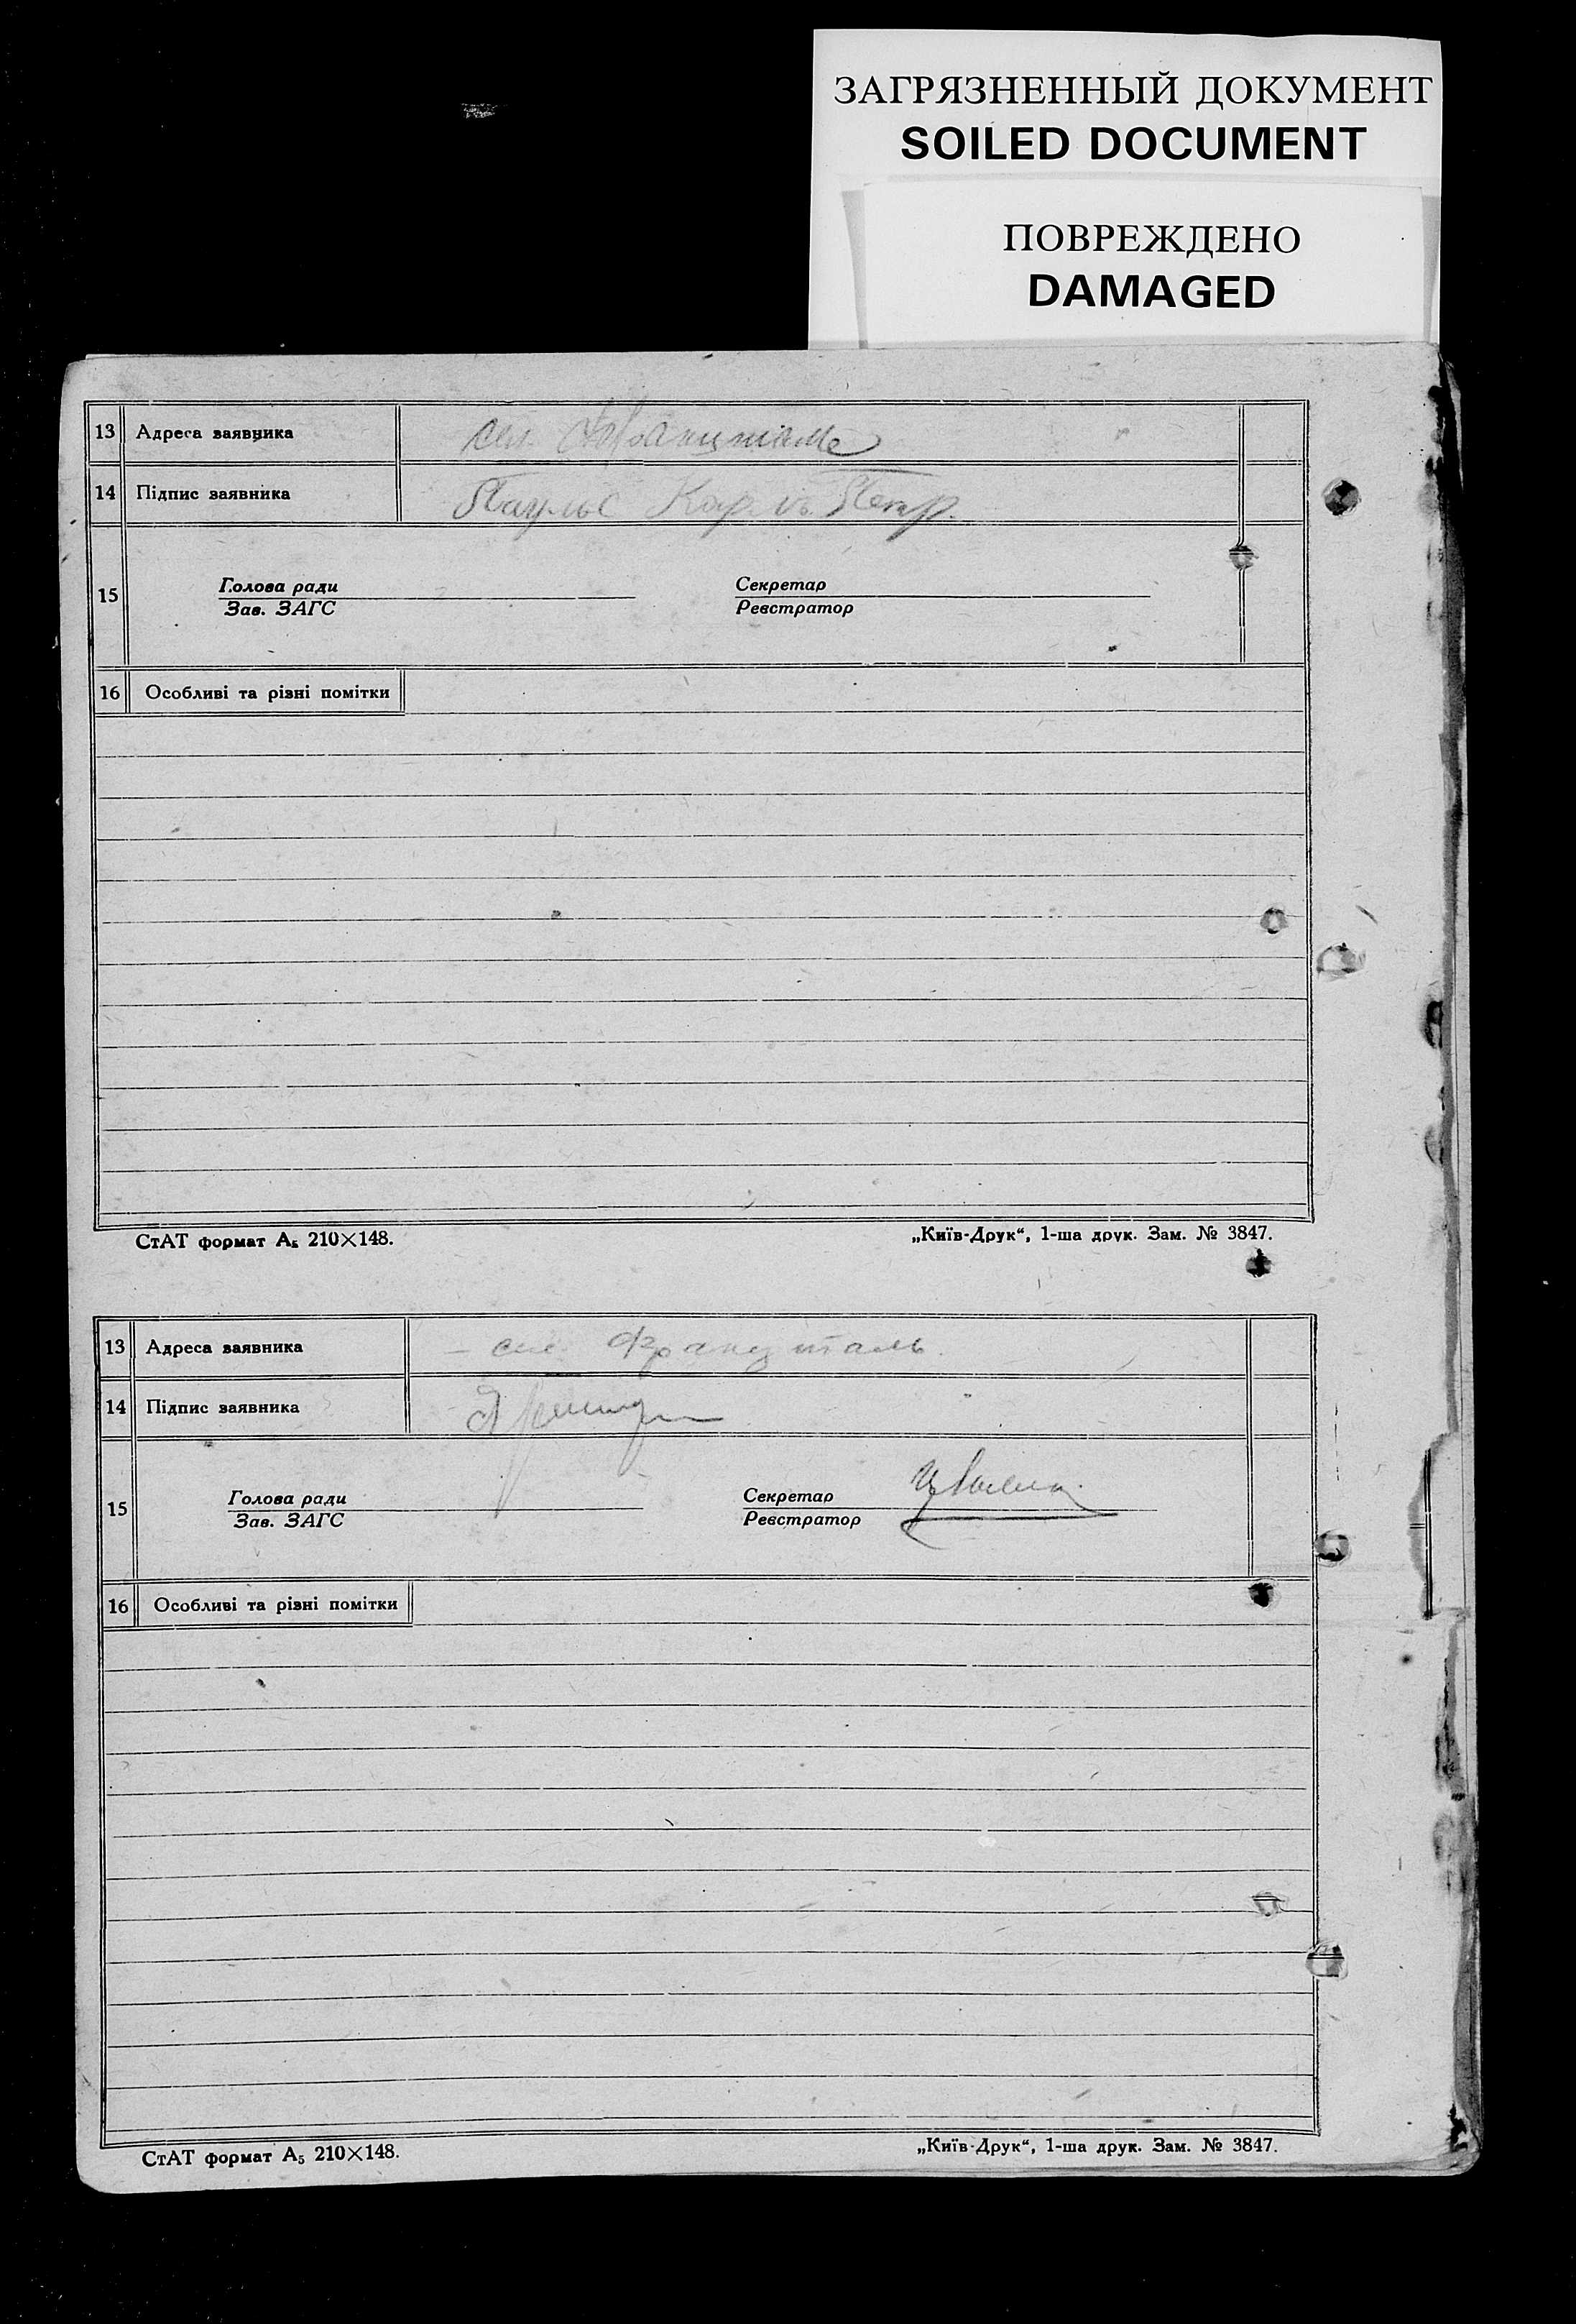 ЗАГРЯЗНЕННЫЙ ДОКУМЕНТ
SOILED DOCUMENT
ПОВРЕЖДЕНО
DAMAGED
13 Адреса заявника сел. Францталь
14 Підпис заявника Паульс Карл Петр.
15 Голова ради Секретар
Зав. ЗАГС Реєстратор
16 Особливі та різні помітки
СтАТ формат А₅ 210×148. „Київ-Друк“, 1-ша друк. Зам. № 3847.
13 Адреса заявника – сел. Францталь.
14 Підпис заявника
15 Голова ради Секретар
Зав. ЗАГС Реєстратор
16 Особливі та різні помітки
СтАТ формат А₅ 210×148. „Київ-Друк“, 1-ша друк. Зам. № 3847.